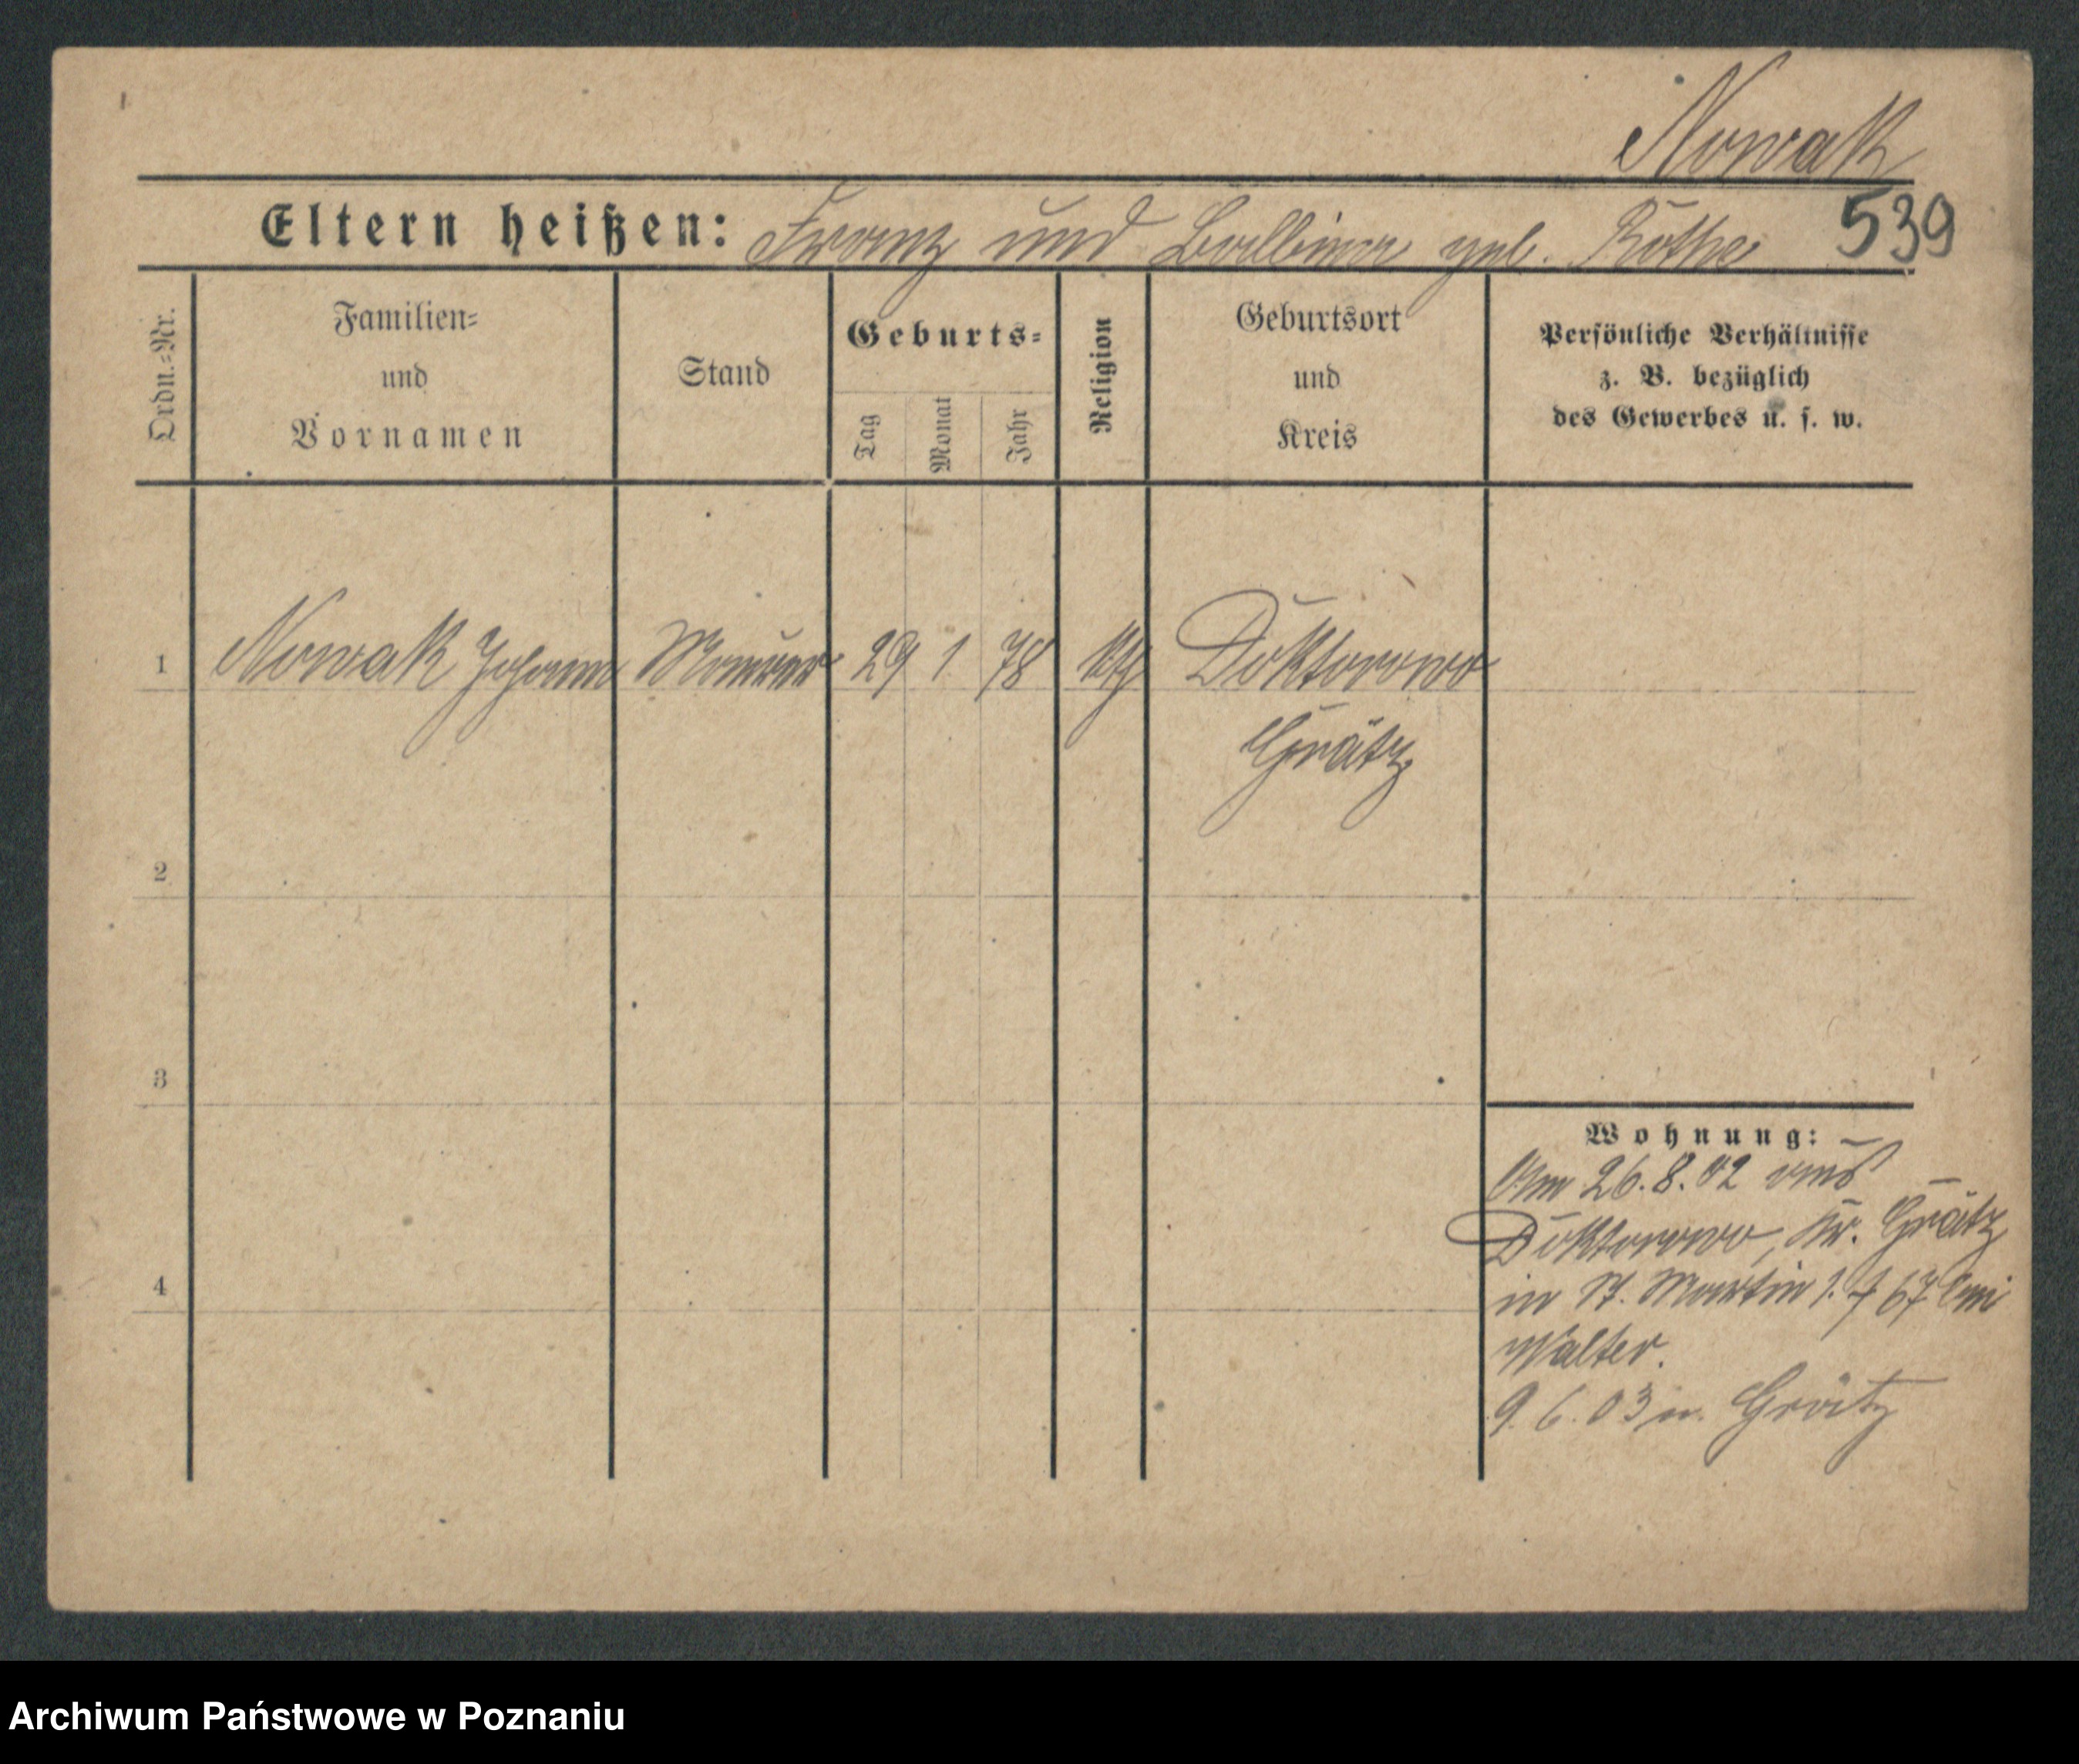 Nowak
Eltern heißen: Franz und Balbina geb. Rothe 539
Ordn.=Nr.
Familien=
und
Vornamen
Stand
Geburts=
Tag
Monat
Jahr
Religion
Geburtsort
und
Kreis
Persönliche Verhältnisse
z. B. bezüglich
des Gewerbes u. s. w.
1 Nowak Johann Maurer 29 1 78 kth Doktorowo
Grätz
2
3
4
Wohnung:
Am 26.8.02 aus
Doktorowo, Kr. Grätz
in St. Martin 67 bei
Walter.
9.6.03 n. Grätz
Archiwum Państwowe w Poznaniu